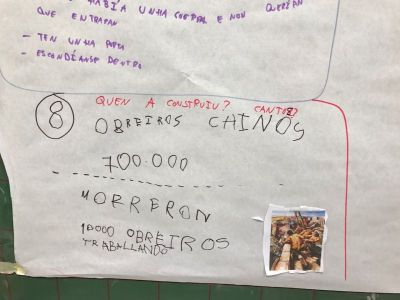 HABÍA UNHA CORRAL E NON QUERÍAN
QUE ENTRARAN
- TEN UNHA PORTA
- ESCONDÍANSE DENTRO
8
QUEN A CONSTRUIU? CANTOS?
OBREIROS CHINOS
700.000
MORRERON
10000 OBREIROS
TRABALLANDO